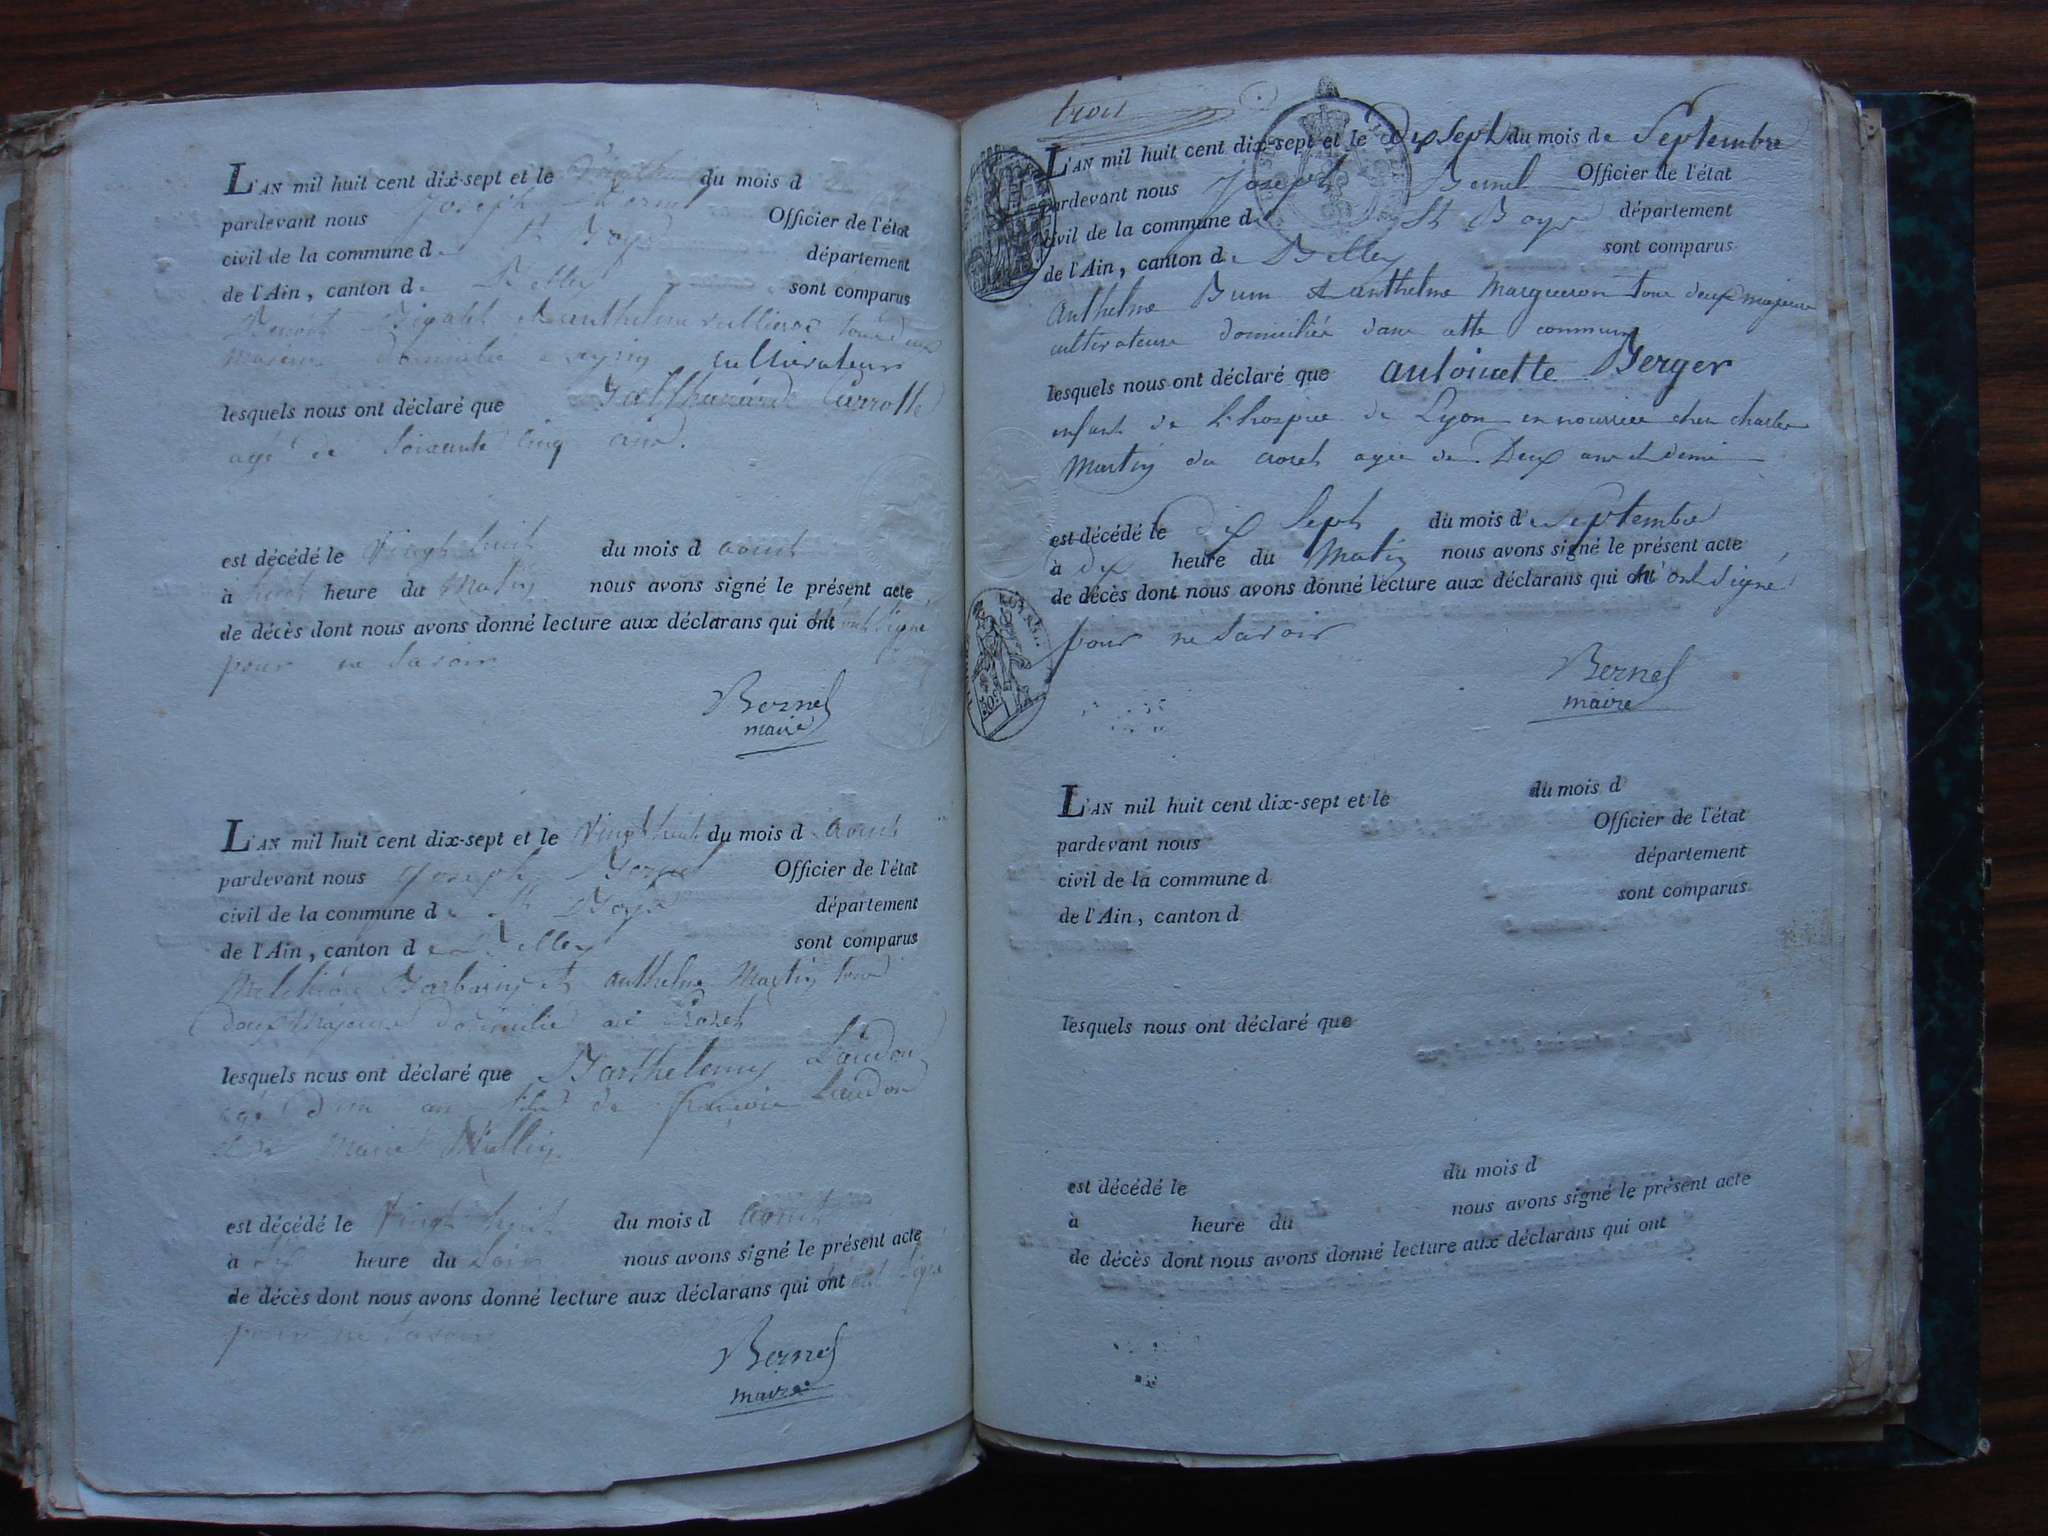 L'AN mil huit cent dix-sept et le du mois d
pardevant nous Joseph Bernel Officier de l'état
civil de la commune de St Boys département
de l'Ain, canton de Belley sont comparus
Benoit anthelme tous deux
majeurs domicilié cultivateurs
lesquels nous ont déclaré que
agé de Soixante Cinq ans.
est décédé le Vingt huit du mois d aout
à heure du Matin nous avons signé le présent acte
de décès dont nous avons donné lecture aux déclarans qui ont n'ont signé
pour ne Savoir
Bernel
maire
L'AN mil huit cent dix-sept et le Vingt huit du mois d aout
pardevant nous Joseph Bernel Officier de l'état
civil de la commune de St Boys département
de l'Ain, canton de Belley sont comparus
Melchior Barbarin et anthelme Martin tous
deux Majeurs domicilié au Crozet
lesquels nous ont déclaré que Barthelemy Laudon
agé d'un an fils de françois Laudon
et de Marie Vullin
est décédé le Vingt huit du mois d aout
à dix heure du Soir nous avons signé le présent acte
de décès dont nous avons donné lecture aux déclarans qui ont n'ont signé
pour ne Savoir
Bernel
maire
trois
L'AN mil huit cent dix-sept et le dix Sept du mois de Septembre
pardevant nous Joseph Bernel Officier de l'état
civil de la commune de St Boys département
de l'Ain, canton de Belley sont comparus
Anthelme Brun et anthelme Margueron tous deux majeurs
cultivateurs domiciliés dans cette commune
lesquels nous ont déclaré que antoinette Berger
enfant de l'hospice de Lyon en nourrice chez charles
Martin du crozet agée de Deux ans et demi
est décédé le dix Sept du mois de Septembre
à dix heure du Matin nous avons signé le présent acte
de décès dont nous avons donné lecture aux déclarans qui ont n'ont signé
pour ne Savoir
Bernel
maire
L'AN mil huit cent dix-sept et le du mois d
pardevant nous Officier de l'état
civil de la commune d département
de l'Ain, canton d sont comparus
lesquels nous ont déclaré que
est décédé le du mois d
à heure du nous avons signé le présent acte
de décès dont nous avons donné lecture aux déclarans qui ont